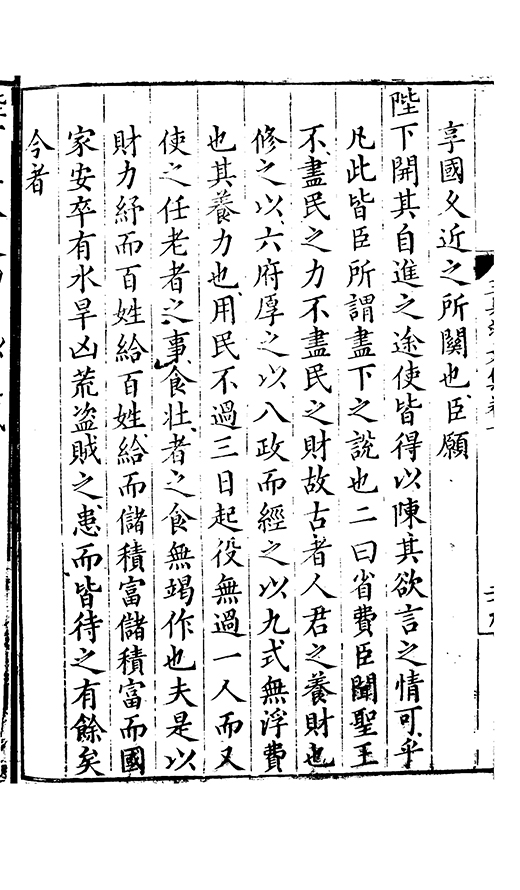 享國久近之所關也臣願
陛下開其自進之途使皆得以陳其欲言之情可乎
凡此皆臣所謂盡下之說也二曰省費臣聞聖王
不盡民之力不盡民之財故古者人君之養財也
修之以六府厚之以八政而經之以九式無浮費
也其養力也用民不過三日起役無過一人而又
使之任老者之事食壯者之食無竭作也夫是以
財力紓而百姓給百姓給而儲積富儲積富而國
家安卒有水旱凶荒盗賊之患而皆待之有餘矣
今者